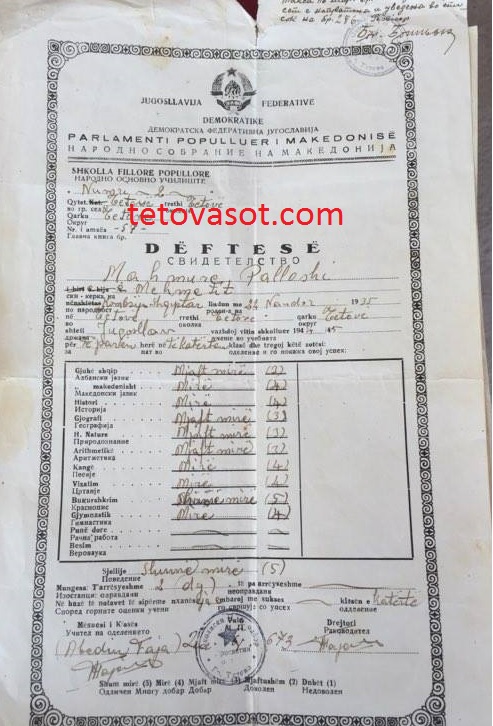 JUGOSLLAVIJA FEDERATIVE
DEMOKRATIKE
ДЕМОКРАТСКА ФЕДЕРАТИВНА ЈУГОСЛАВИЈА
PARLAMENTI POPULLUER I MAKEDONISË
НАРОДНО СОБРАНИЕ НА МАКЕДОНИЈА
SHKOLLA FILLORE POPULLORE
НАРОДНО ОСНОВНО УЧИЛИШТЕ
Qytet. Tetove rrethi Tetove
во гр. село
Qarka
Округ
Nr. i amzës -57-
Главна книга бр.
tetovasot.com
DËFTESË
СВИДЕТЕЛСТВО
Mahmure Palloshi
e Mehmetit
ски - керка на
Kombsija Shqiptar Lindun me 24 Nandor 1935
по народност роден-а на
në Tetovë rrethi Tetovë qarku Tetove
во околиа округ
shteti Jugosllav vazhdoj vitin shkolluer 194 /45
држава учение во учебната
për të parën herë në të katërten klasë dhe tregoj këtë sukses:
за пат во оделение и го покажа овој успех:
Gjuhë shqip Mjaft mirë (3)
Албански јазик
makedonisht Mirë (4)
Македонски јазик
Histori Mirë (4)
Историја
Gjeografi Mjaft mirë (3)
Географија
H. Nature Mjaft mirë (3)
Природознание
Arithmetikë Mjaft mirë (3)
Аритметика
Kangë Mirë (4)
Песије
Vizatim Mirë (4)
Цртање
Bukurshkrim Shumë mirë (5)
Краснопис
Gjymnastik Mirë (4)
Гимнастика
Punë dore
Рачна работа
Besim
Веронаука
Sjellije Shumë mirë (5)
Поведение
Mungesa T'arrësyeshme 2 (dy) të pa arrësyeshme
Изостанци оправдани неоправдани
Në bazë të notavet të sipërme nxanësi-ja mbaroj me sukses klasën e katërtë
Според горните оценки учени го сврши-ј со успех одделение
Mësuesi i klasës Vula Drejtori
Учител на одделението М. П. Раководител
(Abedin Faja)
Shum mirë (5) Mirë (4) Mjaft mirë (3) Mjaftushëm (2) Dobët (1)
Одличен Многу добар Добар Доволен Недоволен